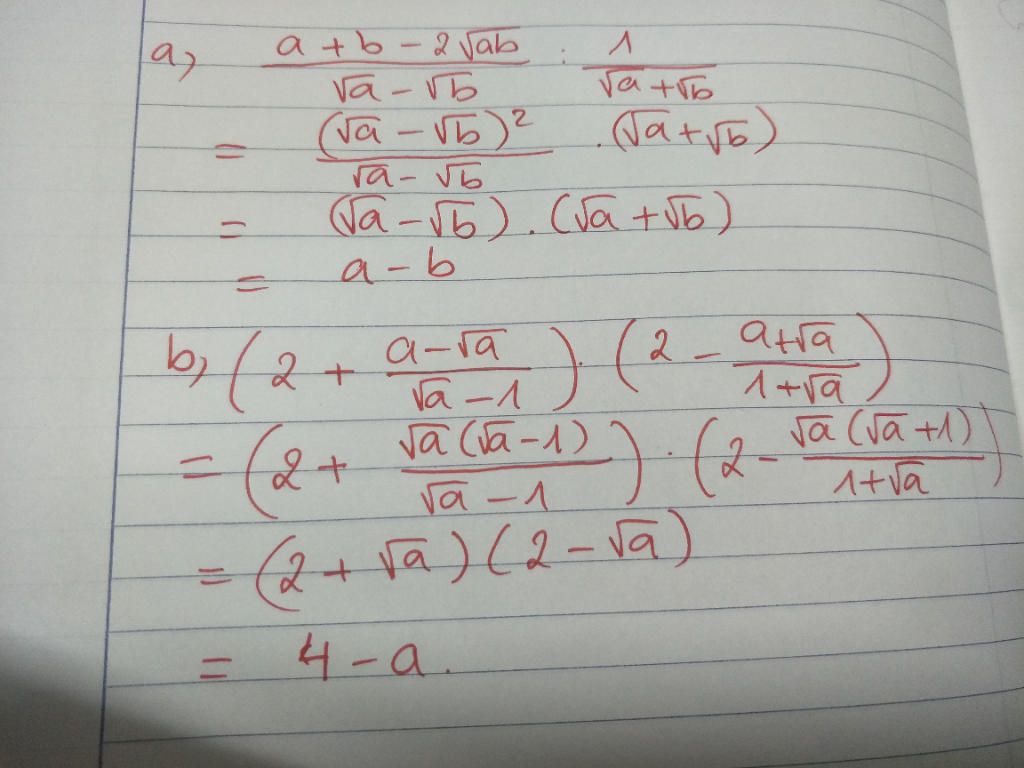 a, (a + b - 2√ab)/(√a - √b) : 1/(√a + √b)
= (√a - √b)²/(√a - √b) . (√a + √b)
= (√a - √b) . (√a + √b)
= a - b
b, (2 + (a - √a)/(√a - 1)) . (2 - (a + √a)/(1 + √a))
= (2 + √a(√a - 1)/(√a - 1)) . (2 - √a(√a + 1)/(1 + √a))
= (2 + √a)(2 - √a)
= 4 - a.